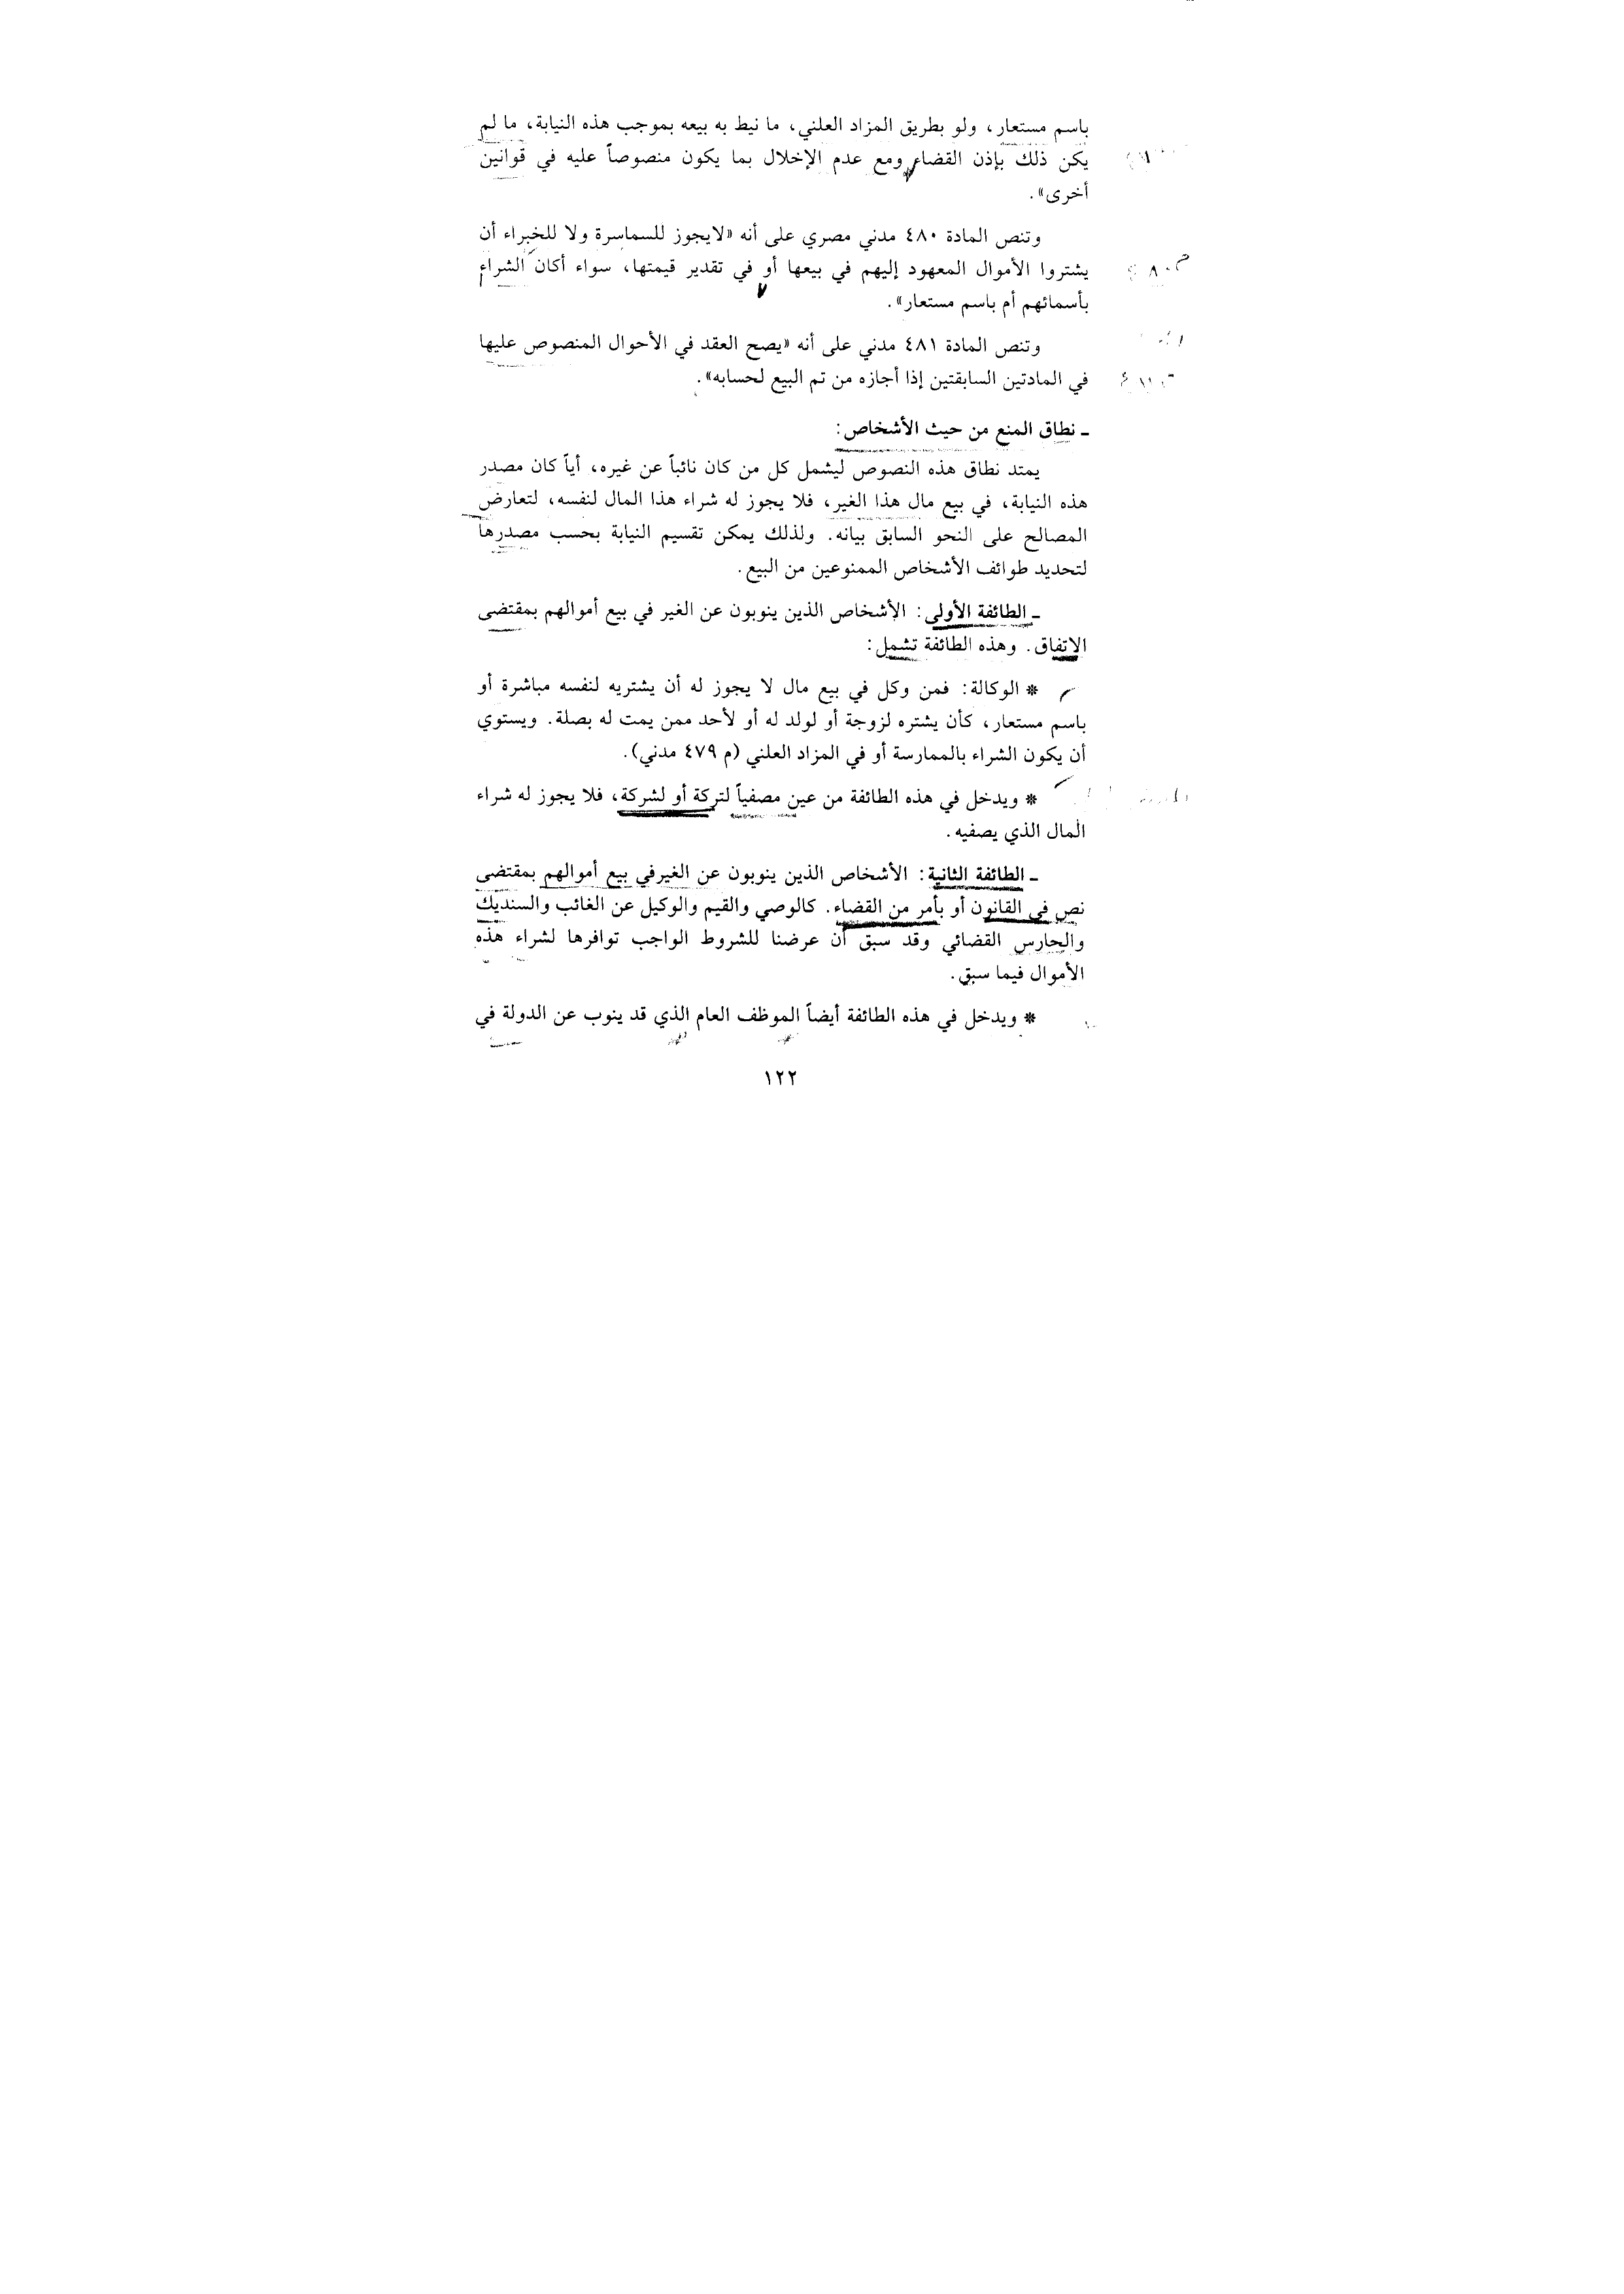 باسم مستعار، ولو بطريق المزاد العلني، ما نيط به بيعه بموجب هذه النيابة، ما لم
يكن ذلك بإذن القضاء ومع عدم الإخلال بما يكون منصوصاً عليه في قوانين
أخرى».
وتنص المادة ٤٨٠ مدني مصري على أنه «لايجوز للسماسرة ولا للخبراء أن
يشتروا الأموال المعهود إليهم في بيعها أو في تقدير قيمتها، سواء أكان الشراء
بأسمائهم أم باسم مستعار».
وتنص المادة ٤٨١ مدني على أنه «يصح العقد في الأحوال المنصوص عليها
في المادتين السابقتين إذا أجازه من تم البيع لحسابه».
ـ نطاق المنع من حيث الأشخاص:
يمتد نطاق هذه النصوص ليشمل كل من كان نائباً عن غيره، أياً كان مصدر
هذه النيابة، في بيع مال هذا الغير، فلا يجوز له شراء هذا المال لنفسه، لتعارض
المصالح على النحو السابق بيانه. ولذلك يمكن تقسيم النيابة بحسب مصدرها
لتحديد طوائف الأشخاص الممنوعين من البيع.
ـ الطائفة الأولى: الأشخاص الذين ينوبون عن الغير في بيع أموالهم بمقتضى
الاتفاق. وهذه الطائفة تشمل:
* الوكالة: فمن وكل في بيع مال لا يجوز له أن يشتريه لنفسه مباشرة أو
باسم مستعار، كأن يشتره لزوجة أو لولد له أو لأحد ممن يمت له بصلة. ويستوي
أن يكون الشراء بالممارسة أو في المزاد العلني (م ٤٧٩ مدني).
* ويدخل في هذه الطائفة من عين مصفياً لتركة أو لشركة، فلا يجوز له شراء
المال الذي يصفيه.
ـ الطائفة الثانية: الأشخاص الذين ينوبون عن الغيرفي بيع أموالهم بمقتضى
نص في القانون أو بأمر من القضاء. كالوصي والقيم والوكيل عن الغائب والسنديك
والحارس القضائي وقد سبق أن عرضنا للشروط الواجب توافرها لشراء هذه
الأموال فيما سبق.
* ويدخل في هذه الطائفة أيضاً الموظف العام الذي قد ينوب عن الدولة في
١٢٢